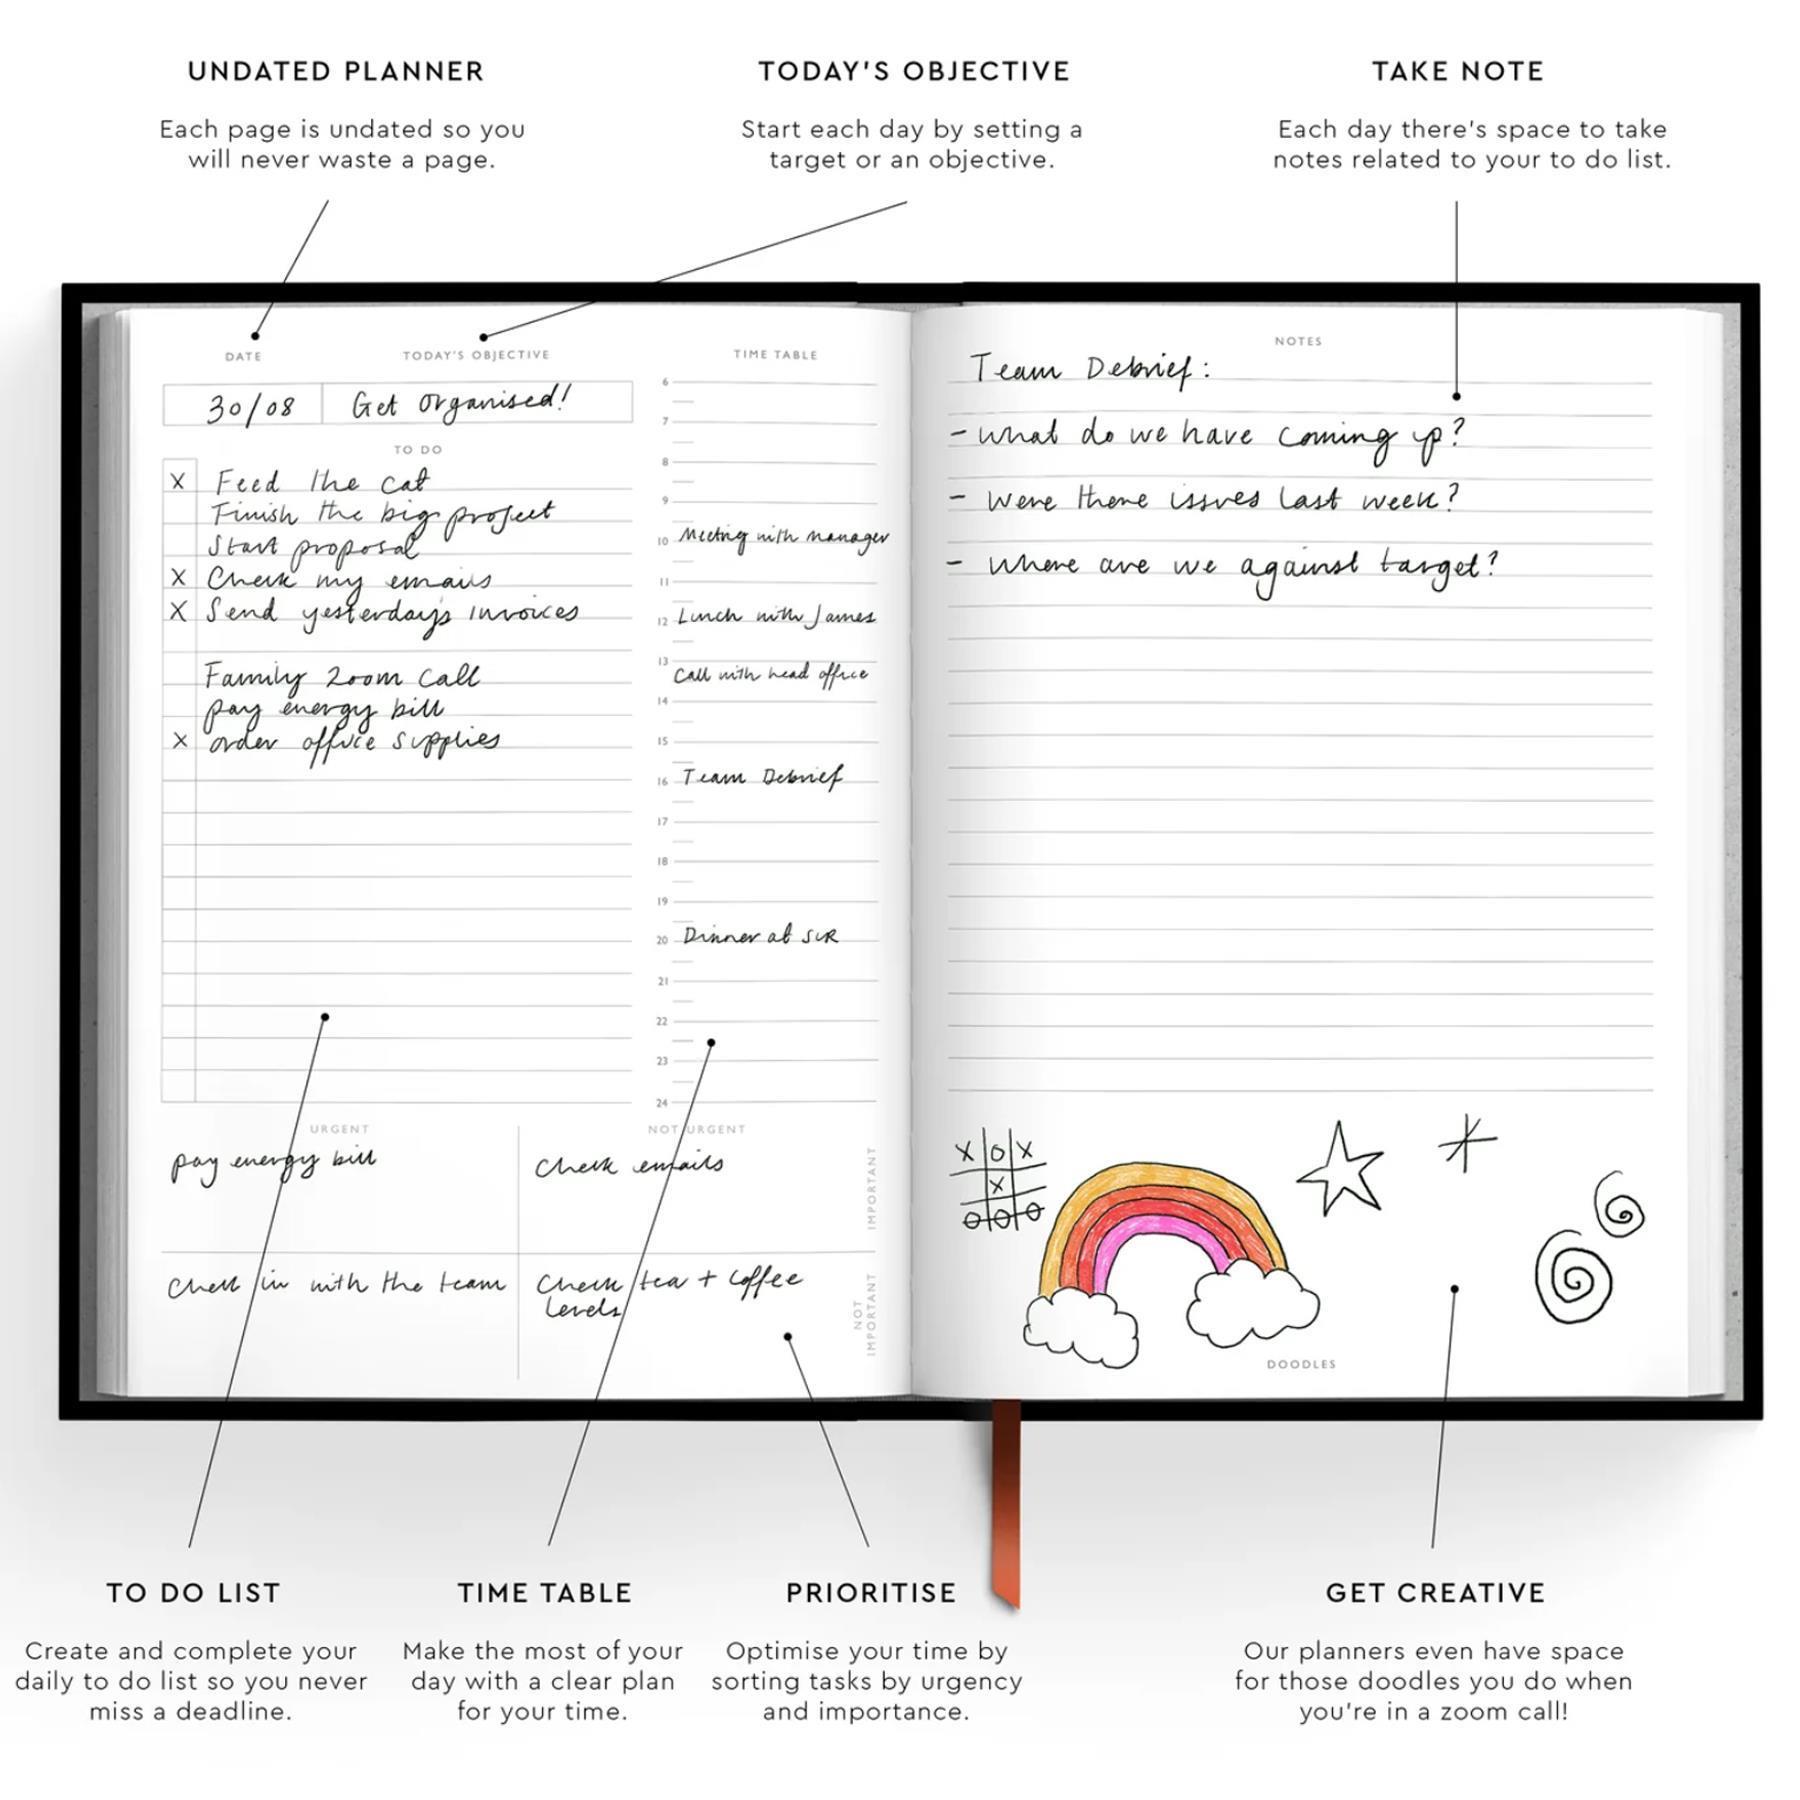 UNDATED PLANNER
Each page is undated so you
will never waste a page.
TODAY'S OBJECTIVE
Start each day by setting a
target or an objective.
TAKE NOTE
Each day there's space to take
notes related to your to do list.
DATE
TODAY'S OBJECTIVE
30/08
Get Organised!
TO DO
X Feed the cat
Finish the big project
Start proposal
X Check my emails
X Send yesterday's invoices
Family zoom call
pay energy bill
X order office supplies
TIME TABLE
6
7
8
9
10 Meeting with manager
11
12 Lunch with James
13
Call with head office
14
15
16 Team Debrief
17
18
19
20 Dinner at SUR
21
22
23
24
URGENT
NOT URGENT
pay energy bill
Check emails
IMPORTANT
Check in with the team
Check tea + coffee
levels
NOT
IMPORTANT
NOTES
Team Debrief:
- What do we have coming up?
- Were there issues last week?
- Where are we against target?
X O X
X
O O O
DOODLES
TO DO LIST
Create and complete your
daily to do list so you never
miss a deadline.
TIME TABLE
Make the most of your
day with a clear plan
for your time.
PRIORITISE
Optimise your time by
sorting tasks by urgency
and importance.
GET CREATIVE
Our planners even have space
for those doodles you do when
you're in a zoom call!